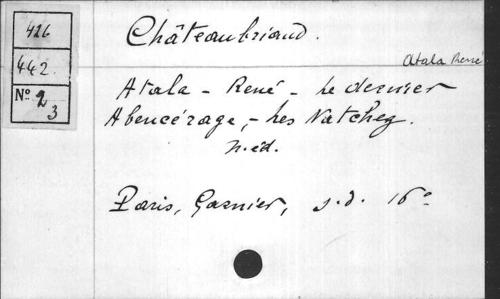 426
442
No 2
3
Châteaubriand.
Atala René
Atala - René - Le dernier
Abencérage, - Les Natchez.
n. éd.
Paris, Garnier, s.d. 16°